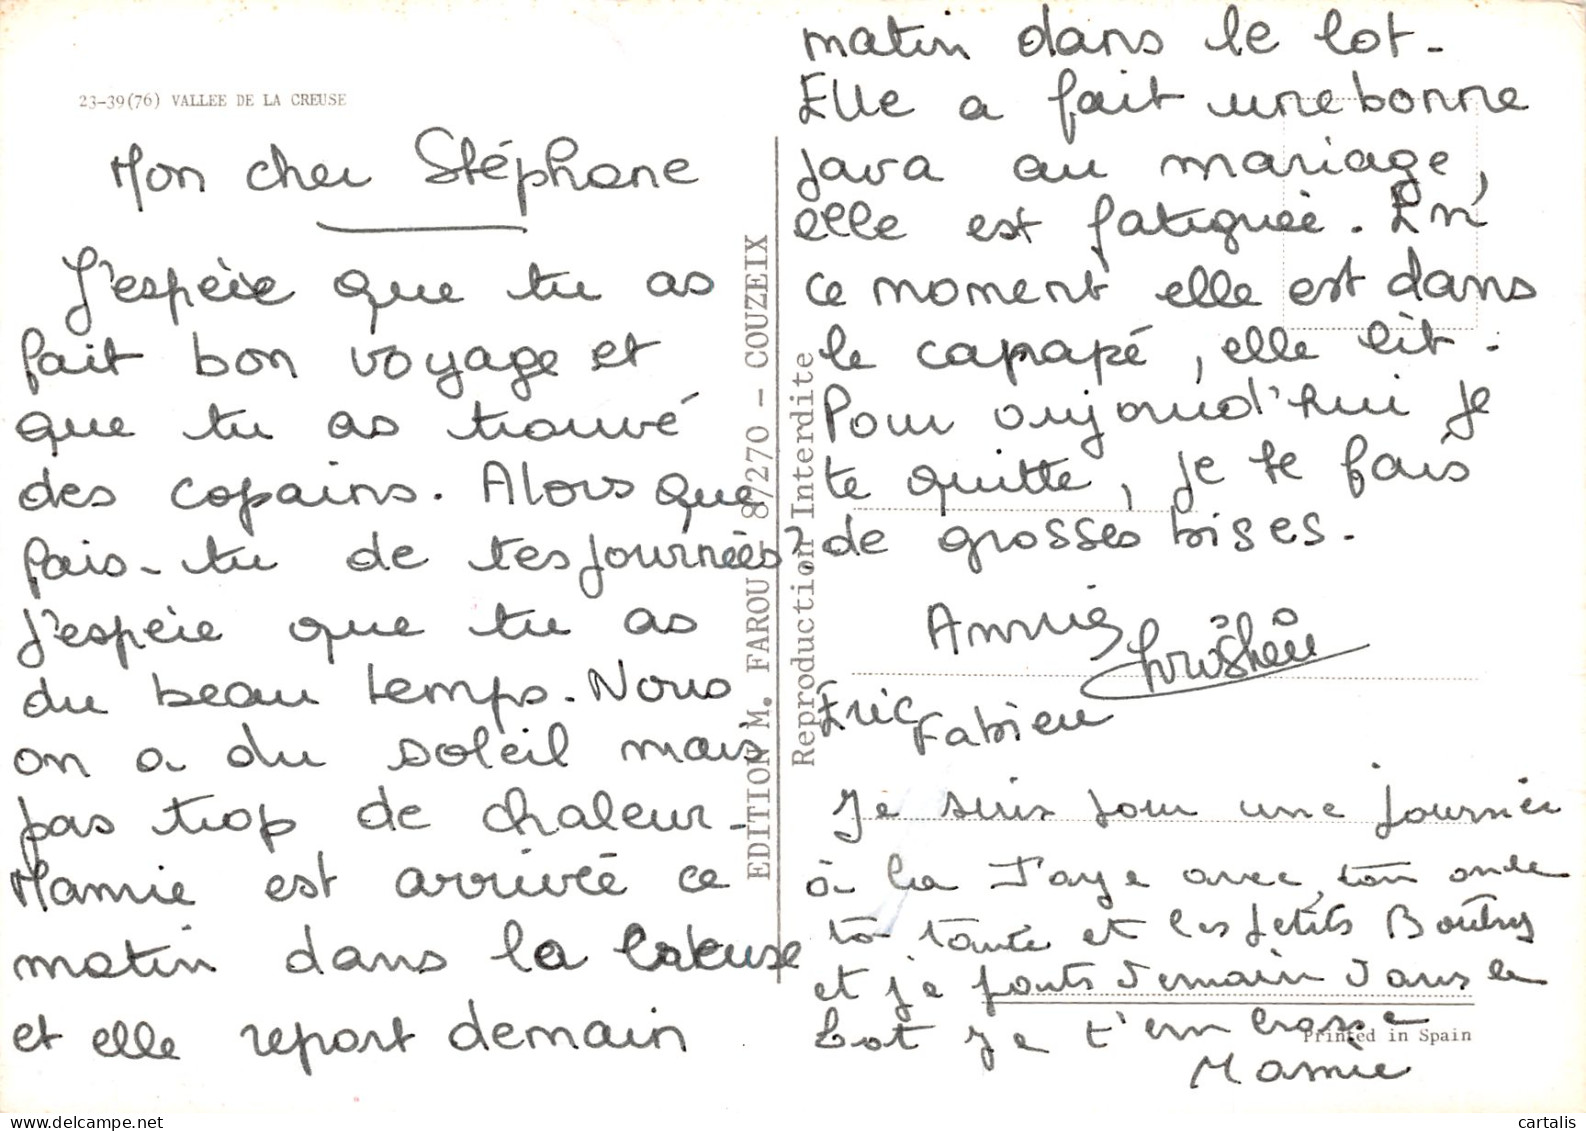 23-39(76) VALLEE DE LA CREUSE
Mon cher Stéphane
J'espère que tu as
fait bon voyage et
que tu as trouvé
des copains. Alors que
fais-tu de tes journées?
J'espère que tu as
du beau temps. Nous
on a du soleil mais
pas trop de chaleur.
Mamie est arrivée ce
matin dans la Creuse
et elle repart demain
EDITION M. FAROU - 87270 - COUZEIX
Reproduction Interdite
matin dans le lot.
Elle a fait une bonne
java au mariage,
elle est fatiguée. En
ce moment elle est dans
le capapé, elle lit.
Pour aujourd'hui je
te quitte, je te fais
de grosses bises.
Annie
Christian
Eric Fabien
Je suis pour une journée
à la avec ton oncle
ta tante et les petits
et je parts demain dans le
Lot je t'embrasse
Mamie
Printed in Spain
cartalis